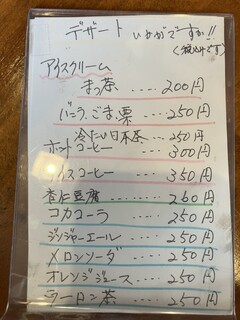 デザート いかがですか!!
(税込みです)
アイスクリーム
まっ茶 ..... 200円
バニラ、ごま、栗 ... 250円
冷たい日本茶 ... 250円
ホットコーヒー ---- 300円
アイスコーヒー .... 350円
杏仁豆腐 ..... 250円
コカコーラ ..... 250円
ジンジャーエール ...... 250円
メロンソーダ .... 250円
オレンジジュース .... 250円
ウーロン茶 ..... 250円